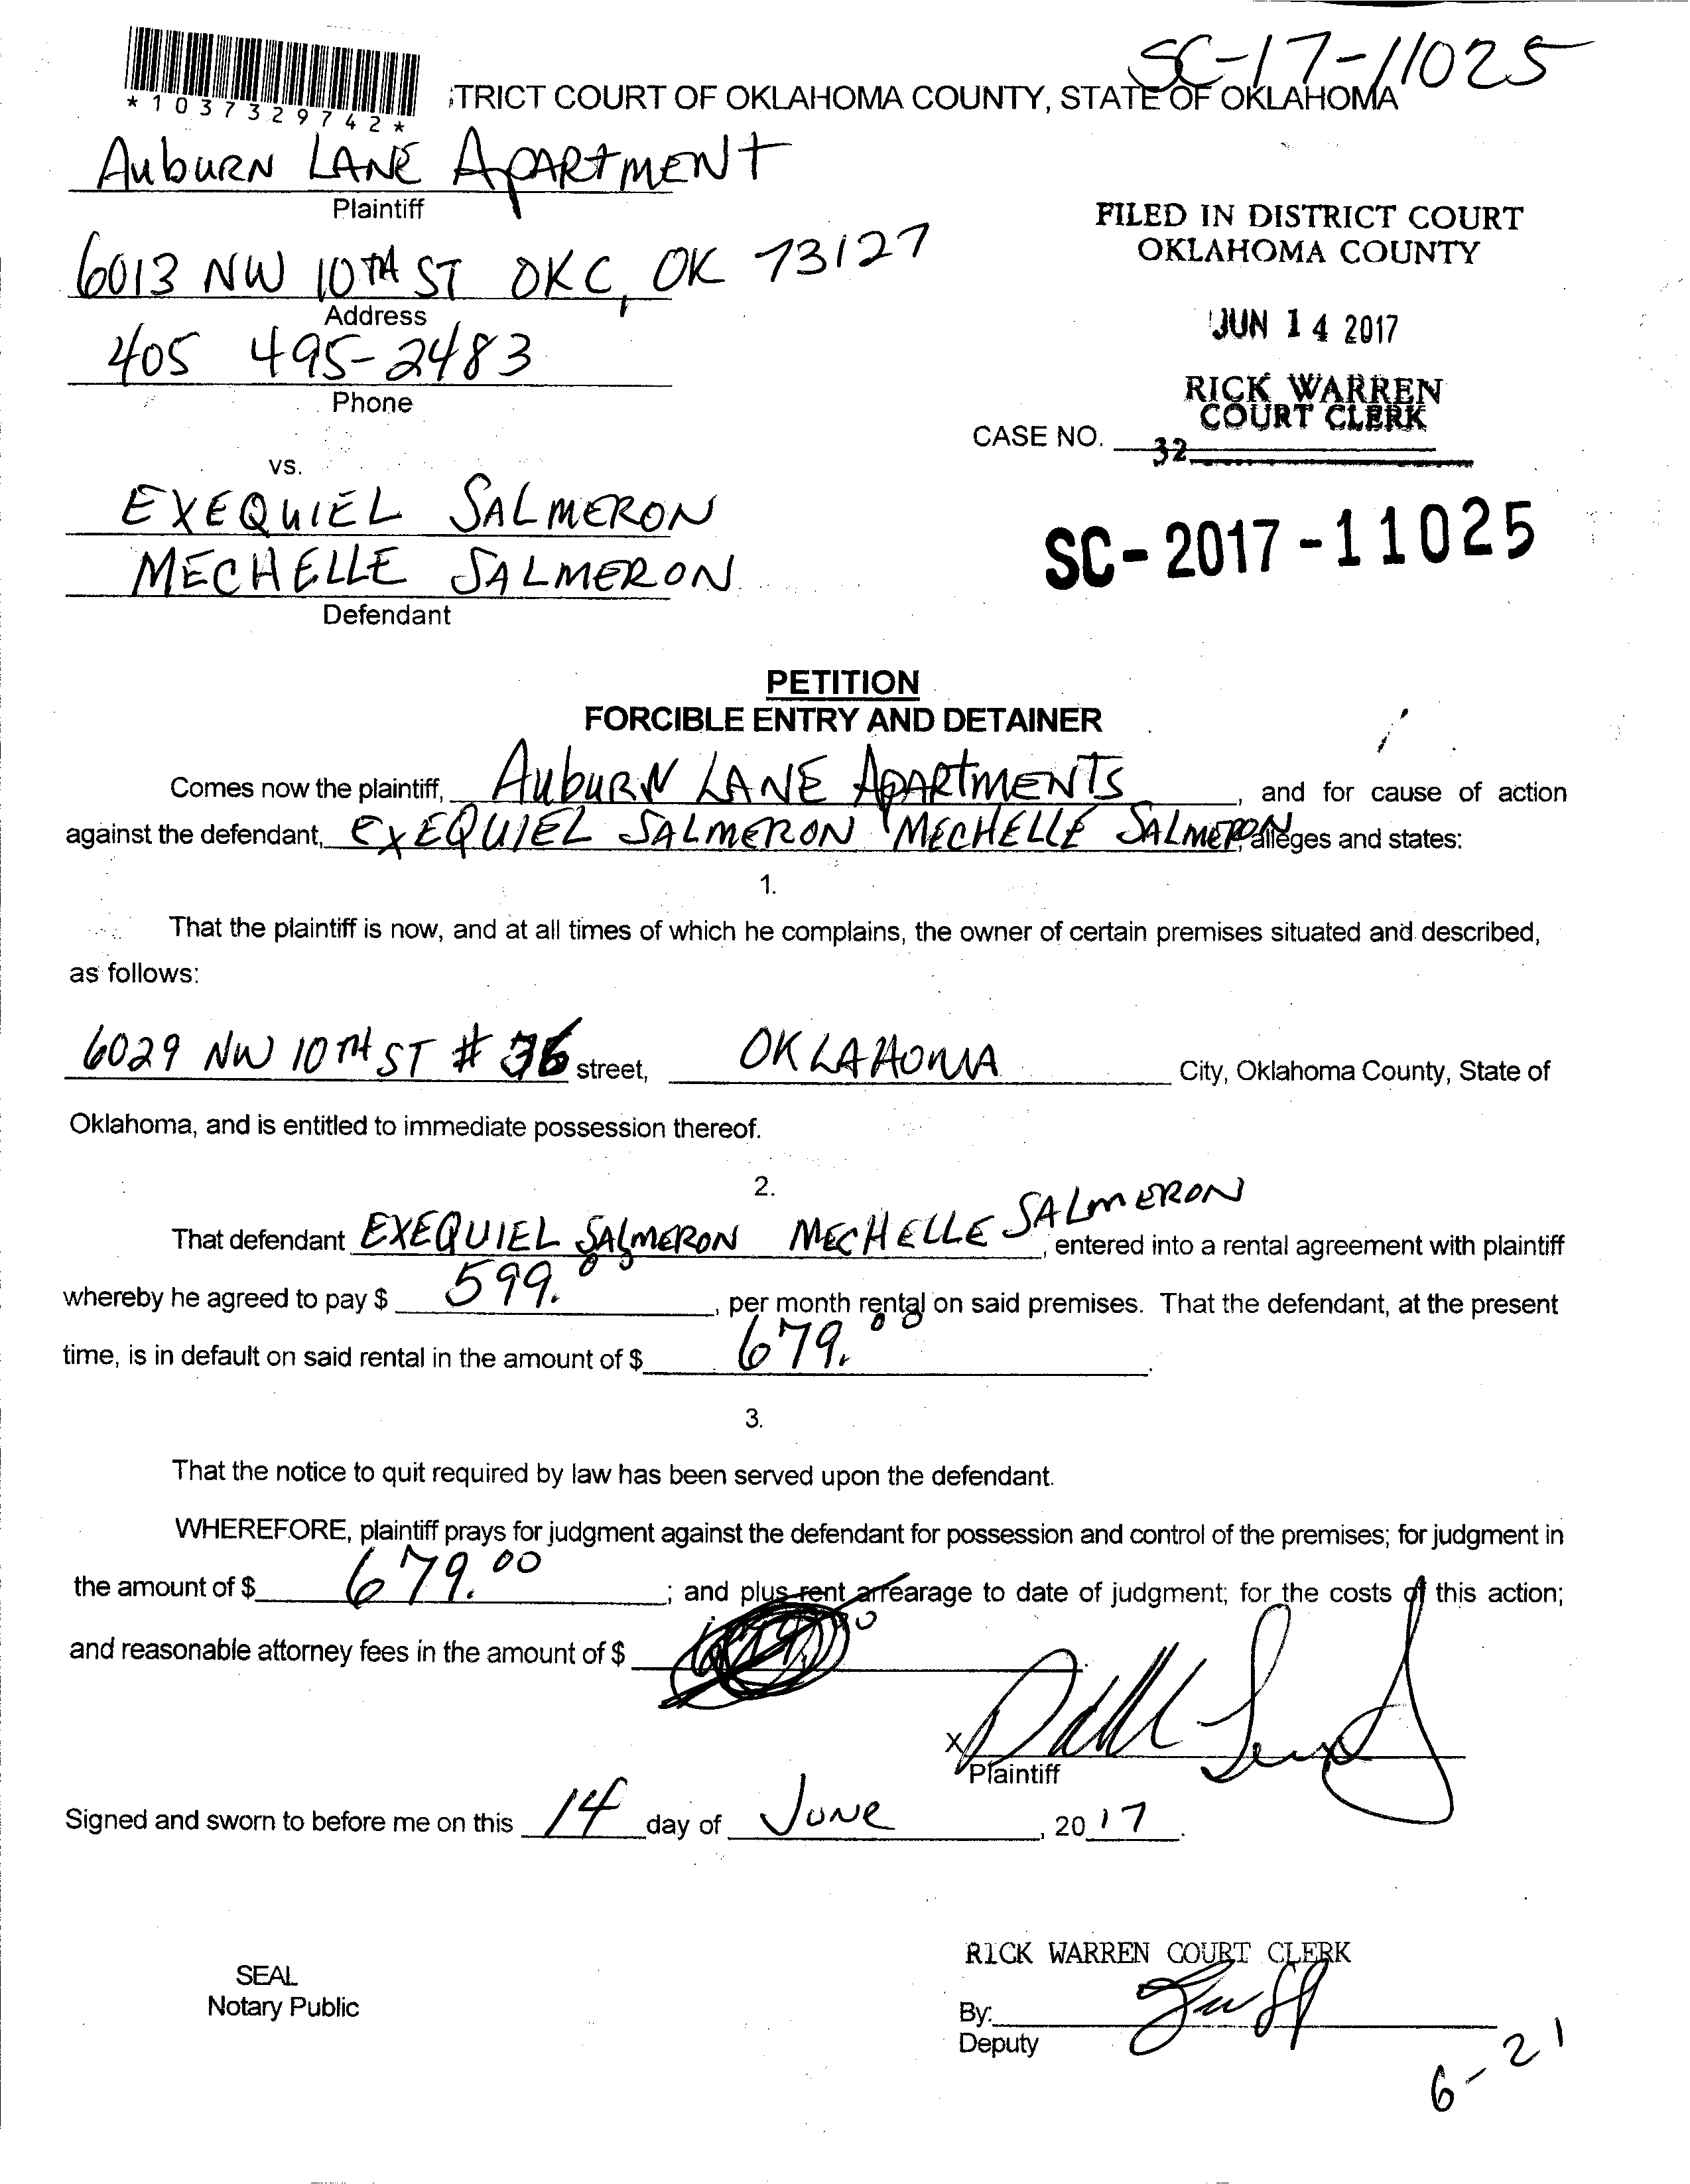 SC-17-11025
*1037329742*
TRICT COURT OF OKLAHOMA COUNTY, STATE OF OKLAHOMA
AuburN LANE APARtMENt
Plaintiff
6013 NW 10TH ST OKC, OK 73127
Address
405 495-2483
Phone
FILED IN DISTRICT COURT
OKLAHOMA COUNTY
JUN 14 2017
RICK WARREN
COURT CLERK
CASE NO.
32
vs.
EXEQUIEL SALMERON
MECHELLE SALMERON
Defendant
SC-2017-11025
PETITION
FORCIBLE ENTRY AND DETAINER
Comes now the plaintiff, AuburN LANE APARtMENTS, and for cause of action
against the defendant, EXEQUIEL SALMERON MECHELLE SALMERON, alleges and states:
1.
That the plaintiff is now, and at all times of which he complains, the owner of certain premises situated and described,
as follows:
6029 NW 10TH ST # 36 street, OKLAHOMA City, Oklahoma County, State of
Oklahoma, and is entitled to immediate possession thereof.
2.
That defendant EXEQUIEL SALMERON MECHELLE SALMERON, entered into a rental agreement with plaintiff
whereby he agreed to pay $ 599.00, per month rental on said premises. That the defendant, at the present
time, is in default on said rental in the amount of $ 679.00.
3.
That the notice to quit required by law has been served upon the defendant.
WHEREFORE, plaintiff prays for judgment against the defendant for possession and control of the premises; for judgment in
the amount of $ 679.00; and plus rent arrearage to date of judgment; for the costs of this action;
and reasonable attorney fees in the amount of $
X
Plaintiff
Signed and sworn to before me on this 14 day of JUNe, 2017.
SEAL
Notary Public
RICK WARREN COURT CLERK
By:
Deputy
6-21